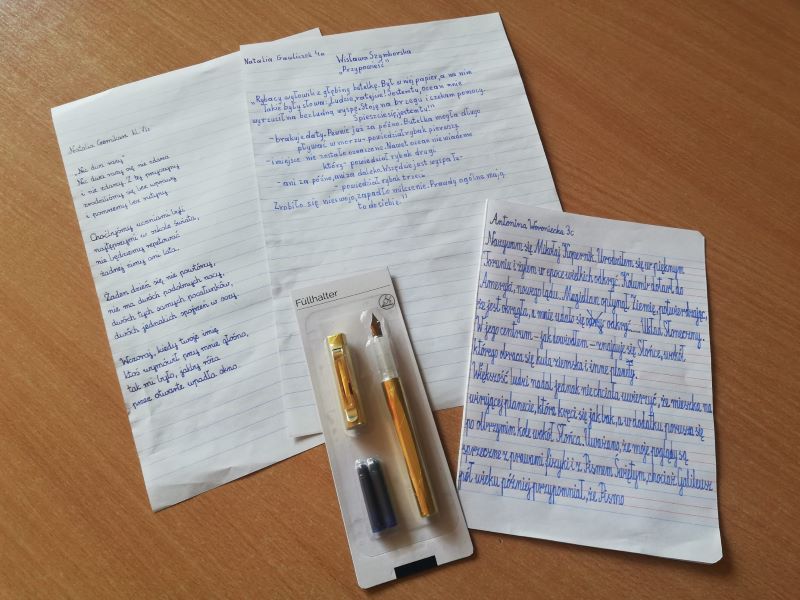 Natalia Gomułkiewicz kl. VIc
„Nic dwa razy"
Nic dwa razy się nie zdarza
i nie zdarzy. Z tej przyczyny
zrodziliśmy się bez wprawy
i pomrzemy bez rutyny.
Choćbyśmy uczniami byli
najtępszymi w szkole świata,
nie będziemy repetować
żadnej zimy ani lata.
Żaden dzień się nie powtórzy,
nie ma dwóch podobnych nocy,
dwóch tych samych pocałunków,
dwóch jednakich spojrzeń w oczy.
Wczoraj, kiedy twoje imię
ktoś wymówił przy mnie głośno,
tak mi było, jakby róża
przez otwarte wpadła okno.
Natalia Gawliczek 4a
Wisława Szymborska
„Przypowieść"
„Rybacy wyłowili z głębiny butelkę. Był w niej papier, a na nim
takie były słowa: „Ludzie, ratujcie! Jestem tu, ocean mnie
wyrzucił na bezludną wyspę. Stoję na brzegu i czekam pomocy.
Spieszcie się, jestem tu!"
- brakuje daty. Pewnie już za późno. Butelka mogła długo
pływać w morzu - powiedział rybak pierwszy.
- i miejsce nie zostało oznaczone. Nawet ocean nie wiadomo
który - powiedział rybak drugi.
- ani za późno, ani za daleko. Wszędzie jest wyspa Tu -
- powiedział rybak trzeci.
Zrobiło się nieswojo, zapadło milczenie. Prawdy ogólne mają
to do siebie."
Antonina Woroniecka 3c
Nazywam się Mikołaj Kopernik. Urodziłem się w pięknym
Toruniu i żyłem w epoce wielkich odkryć. Kolumb dotarł do
Ameryki, nowego lądu. Magellan opłynął Ziemię, potwierdzając,
że jest okrągła, a mnie udało się odkryć - Układ Słoneczny.
W jego centrum - jak dowiodłem - znajduje się Słońce, wokół
którego obraca się kula ziemska i inne planety.
Większość ludzi nadal jednak nie chciała uwierzyć, że mieszka na
wirującej planecie, która kręci się jak bąk, a w dodatku porusza się
po olbrzymim kole wokół Słońca. Uważano, że moje poglądy są
sprzeczne z prawami fizyki i z Pismem Świętym, chociaż Galileusz
pół wieku później przypomniał, że Pismo
Füllhalter